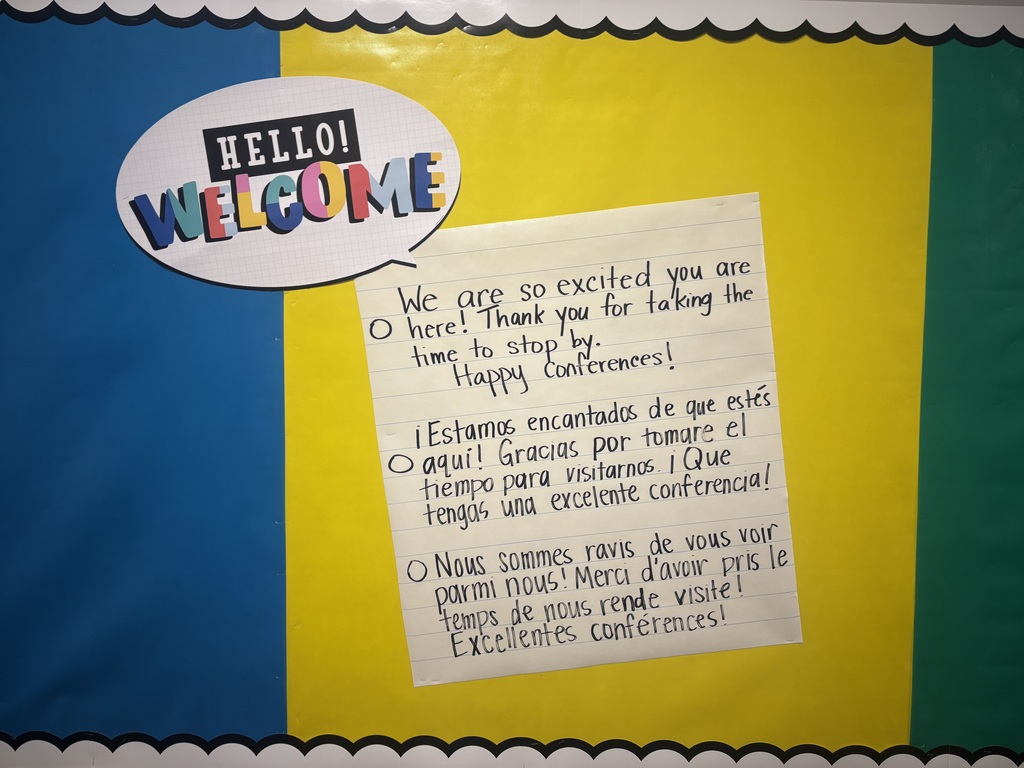 HELLO!
WELCOME
We are so excited you are
here! Thank you for taking the
time to stop by.
Happy Conferences!
¡Estamos encantados de que estés
aquí! Gracias por tomare el
tiempo para visitarnos. ¡Que
tengas una excelente conferencia!
Nous sommes ravis de vous voir
parmi nous! Merci d'avoir pris le
temps de nous rende visite!
Excellentes conférences!